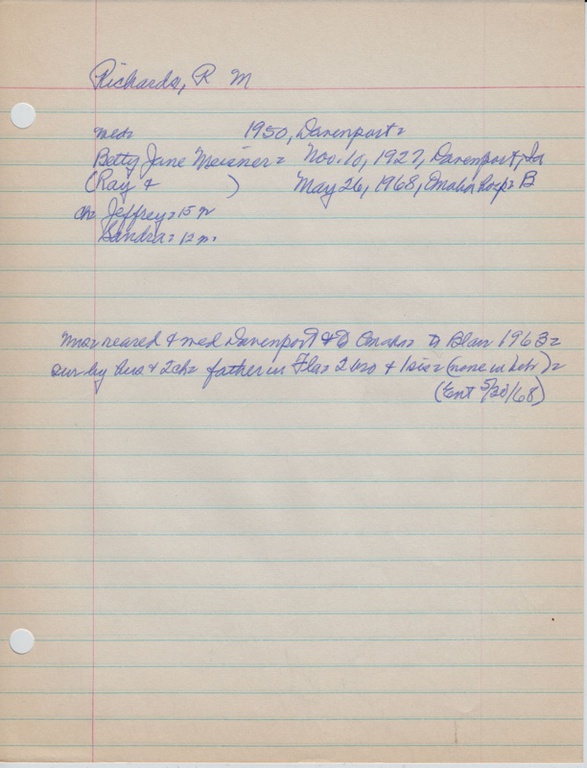 Richards, R M
med= 1950, Davenport=
Betty Jane Meisner= Nov. 10, 1927, Davenport, Ia
(Ray & ) May 26, 1968, Omaha hosp= B
ch= Jeffrey= 15 yr
Sandra= 12 yr
Mrs= reared & med Davenport & to Omaha= to Blair 1963=
sur by hus & 2 ch= father in Fla= 2 bro & 1 sis= (none in Nebr)=
(Ent 5/28/68)